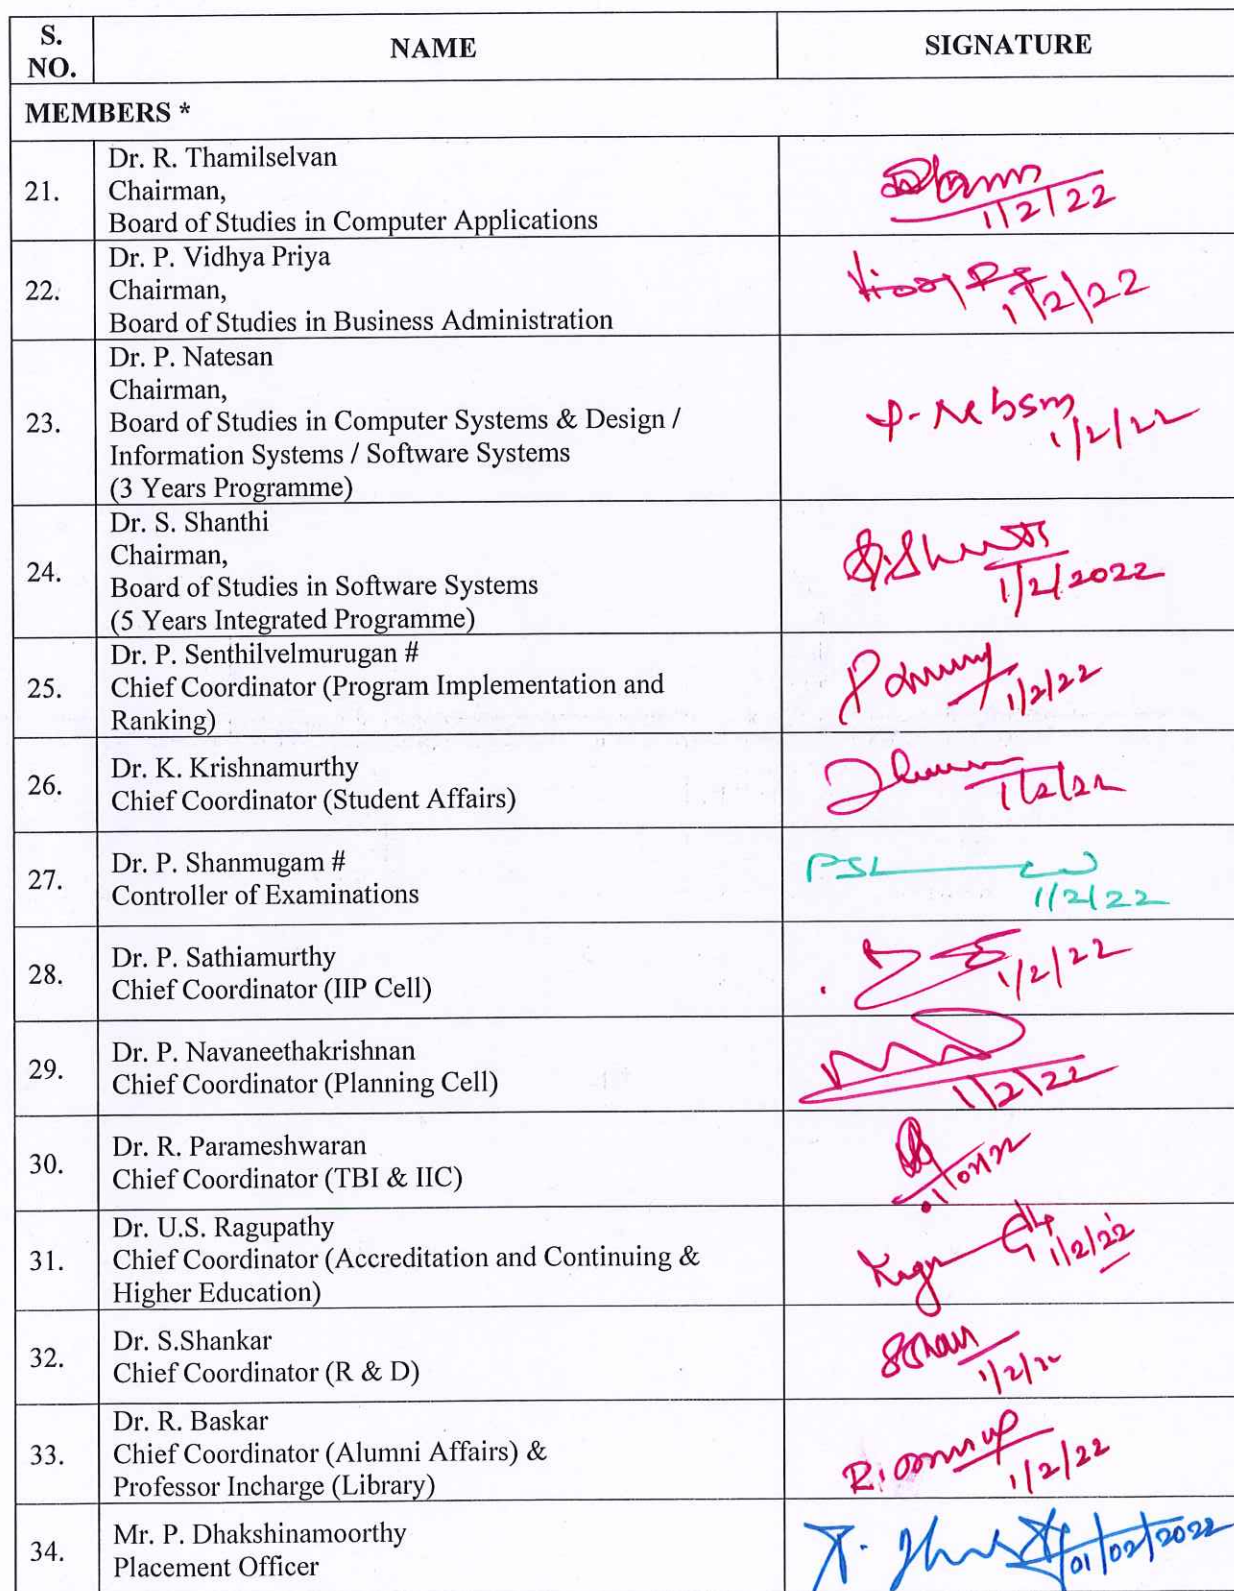 S.
NO.
NAME
SIGNATURE
MEMBERS *
21.
Dr. R. Thamilselvan
Chairman,
Board of Studies in Computer Applications
1/2/22
22.
Dr. P. Vidhya Priya
Chairman,
Board of Studies in Business Administration
1/2/22
23.
Dr. P. Natesan
Chairman,
Board of Studies in Computer Systems & Design /
Information Systems / Software Systems
(3 Years Programme)
1/2/22
24.
Dr. S. Shanthi
Chairman,
Board of Studies in Software Systems
(5 Years Integrated Programme)
1/2/2022
25.
Dr. P. Senthilvelmurugan #
Chief Coordinator (Program Implementation and
Ranking)
1/2/22
26.
Dr. K. Krishnamurthy
Chief Coordinator (Student Affairs)
1/2/22
27.
Dr. P. Shanmugam #
Controller of Examinations
1/2/22
28.
Dr. P. Sathiamurthy
Chief Coordinator (IIP Cell)
1/2/22
29.
Dr. P. Navaneethakrishnan
Chief Coordinator (Planning Cell)
1/2/22
30.
Dr. R. Parameshwaran
Chief Coordinator (TBI & IIC)
01/02/22
31.
Dr. U.S. Ragupathy
Chief Coordinator (Accreditation and Continuing &
Higher Education)
1/2/22
32.
Dr. S.Shankar
Chief Coordinator (R & D)
1/2/22
33.
Dr. R. Baskar
Chief Coordinator (Alumni Affairs) &
Professor Incharge (Library)
1/2/22
34.
Mr. P. Dhakshinamoorthy
Placement Officer
01/02/2022